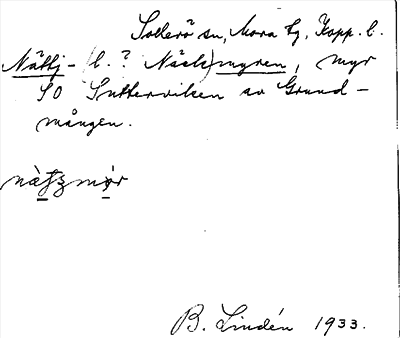 Sollerö sn, Mora tg, Kopp. l.
Nättj- (l. ? Näck)myren, myr
SO Suttervilsen av Grund-
mången.
B. Lindén 1933.